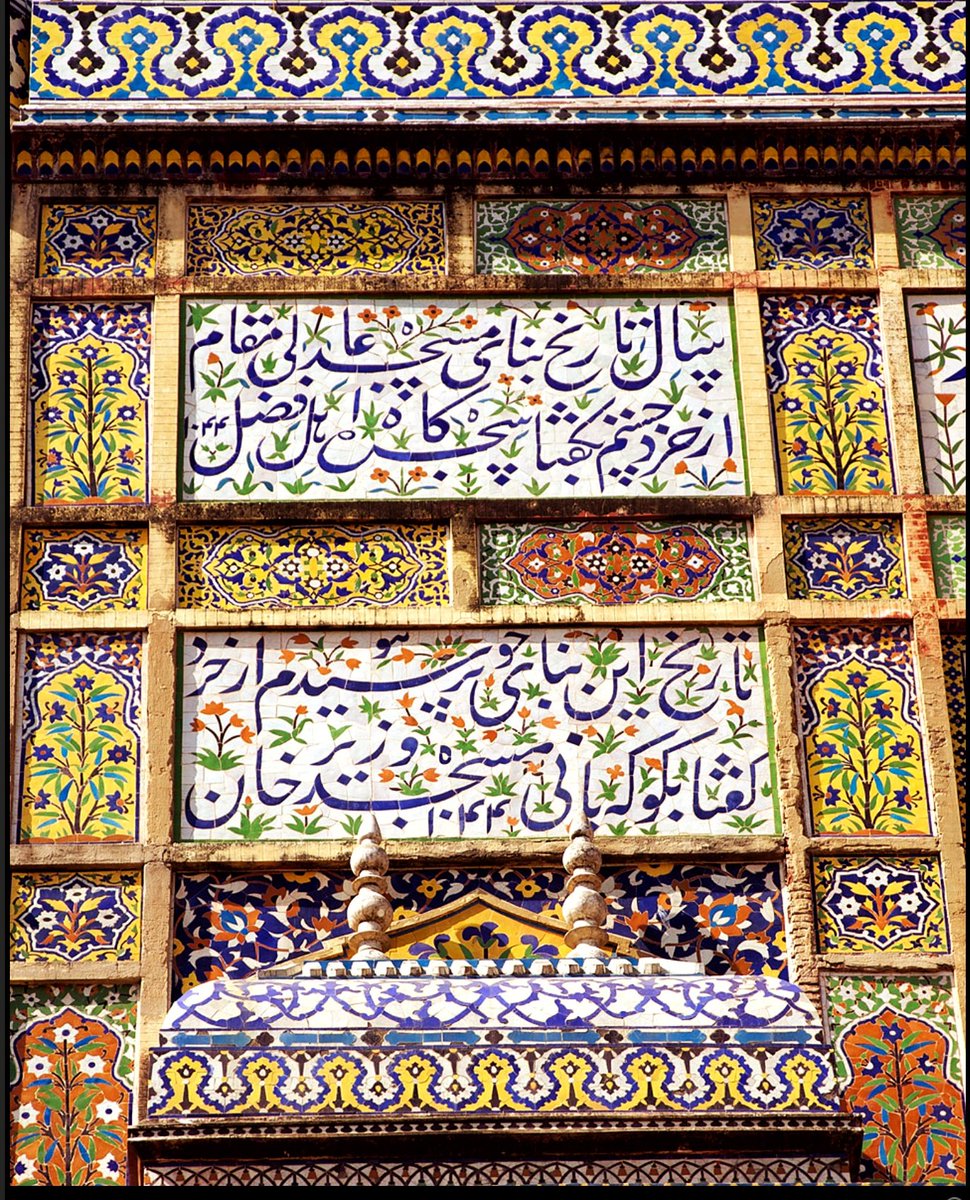 سال تاریخ بنای مسجد عالی مقام
از خرد جستم بکفتا سجده کاه اهل فضل ۱۰۴۴
تاریخ این بنای چو پرسیدم از خرد
کفتا بکو که بانی مسجد وزیر خان ۱۰۴۴